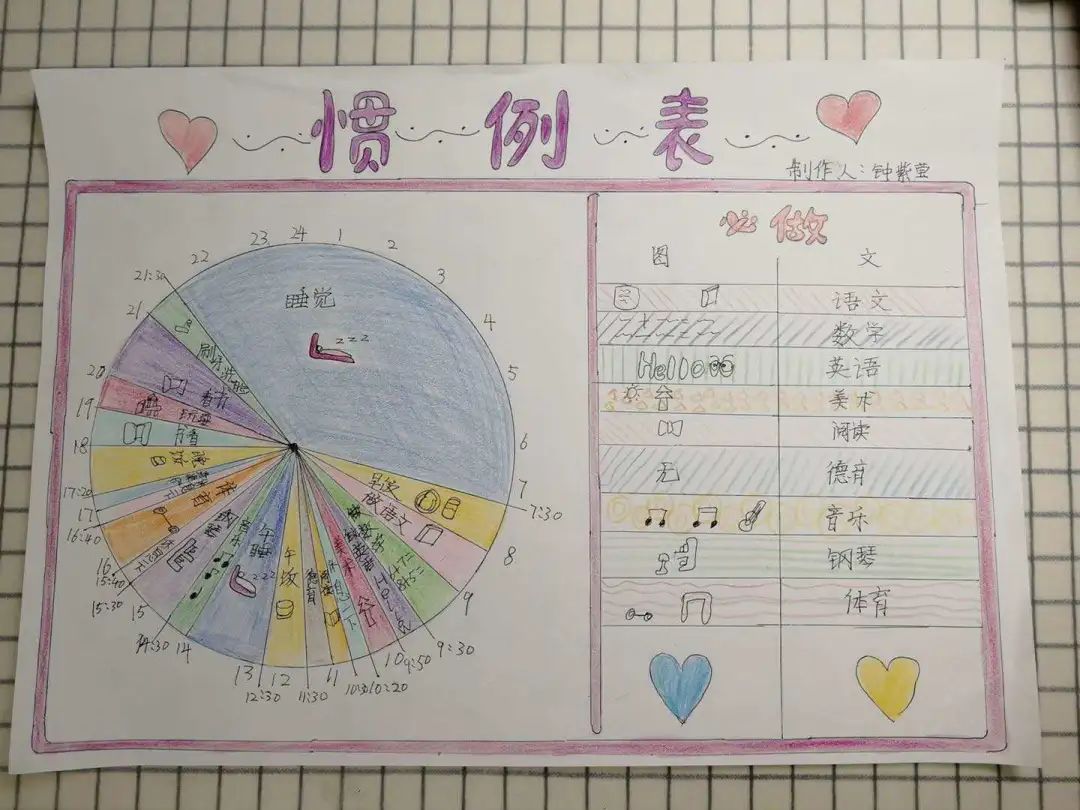 惯例表
制作人:钟紫萤
23 24 1 2 3 4 5 6 7 7:30 8 9 9:30 9:50 10 10:20 10:30 11 11:30 12 12:30 13 14 14:30 15 15:30 15:40 16 16:40 17 17:20 18 19 20 21 21:30 22
睡觉
zzz
早饭
做语文
做数学
美术
休息一下
德育
午饭
午睡
zzz
音乐
钢琴
体育
看书
看书
必做
图 文
语文
数学
Hello 英语
美术
阅读
无 德育
音乐
钢琴
体育